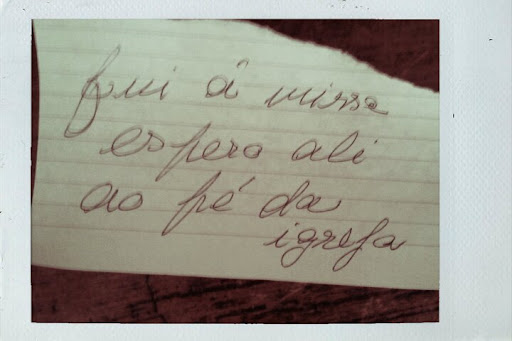 fui á missa
espero ali
ao pé da
igreja